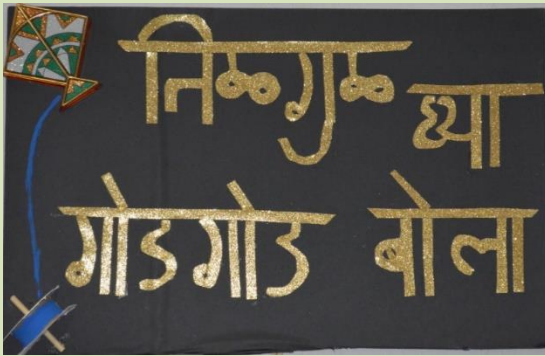 तिळगुळ घ्या
गोडगोड बोला